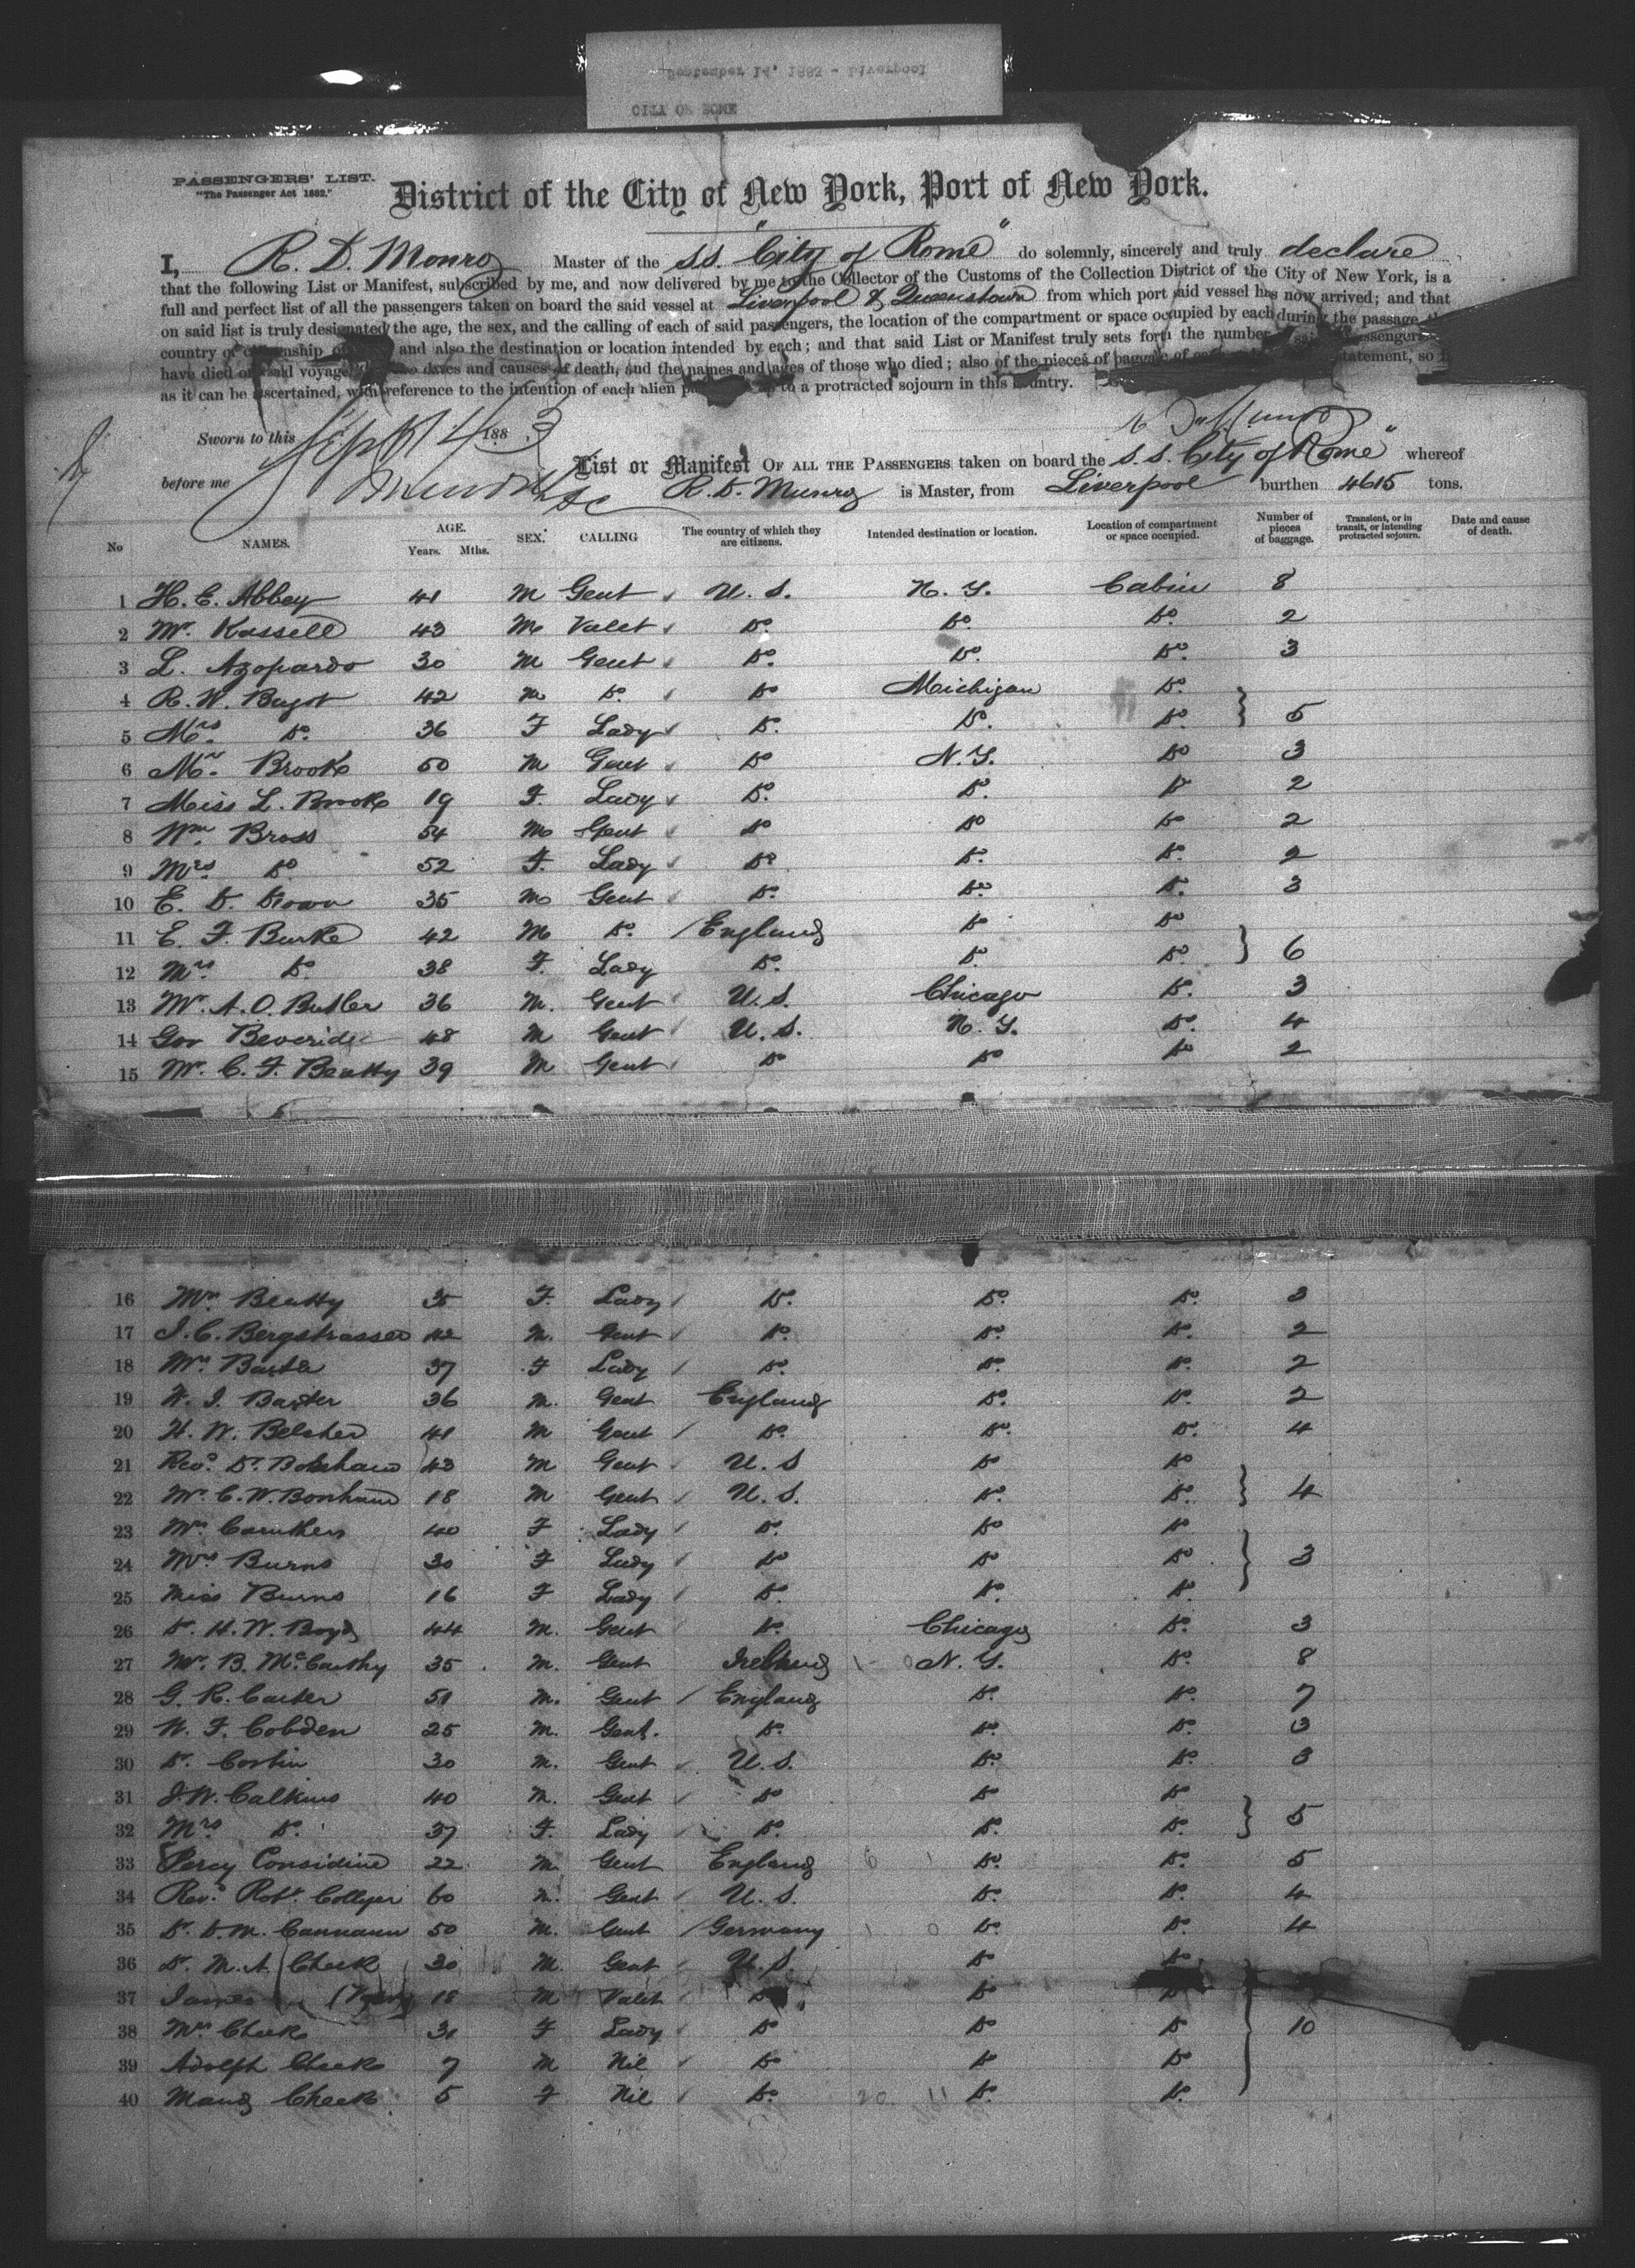 September 14, 1883 - Liverpool
CITY OF ROME
PASSENGERS' LIST.
"The Passenger Act 1882."
District of the City of New York, Port of New York.
I, R. D. Munro Master of the SS. "City of Rome" do solemnly, sincerely and truly declare
that the following List or Manifest, subscribed by me, and now delivered by me to the Collector of the Customs of the Collection District of the City of New York, is a
full and perfect list of all the passengers taken on board the said vessel at Liverpool & Queenstown from which port said vessel has now arrived; and that
on said list is truly designated the age, the sex, and the calling of each of said passengers, the location of the compartment or space occupied by each during the passage
country of citizenship and also the destination or location intended by each; and that said List or Manifest truly sets forth the number said passengers
have died on said voyage dates and causes of death, and the names and ages of those who died; also of the pieces of baggage of statement, so
as it can be ascertained, with reference to the intention of each alien to a protracted sojourn in this country.
Sworn to this Sept 14 1883
before me
List or Manifest OF ALL THE PASSENGERS taken on board the S.S. "City of Rome" whereof
R. D. Munro is Master, from Liverpool burthen 4615 tons.
No NAMES. AGE. Years. Mths. SEX. CALLING The country of which they are citizens. Intended destination or location. Location of compartment or space occupied. Number of pieces of baggage. Transient, or in transit, or intending protracted sojourn. Date and cause of death.
1 H. E. Abbey 41 M Gent U. S. N. Y. Cabin 8
2 Mr. Kassell 43 M Valet Do. Do. Do. 2
3 L. Azopardo 30 M Gent Do. Do. Do. 3
4 R. W. 42 M Do. Do Michigan Do.
5 Mrs. Do. 36 F Lady Do. Do. Do. } 5
6 Mr. Brooke 50 M Gent Do N. Y. Do 3
7 Miss L. Brooke 19 F. Lady Do. Do. Do 2
8 Wm. Bross 54 M Gent Do Do Do 2
9 Mrs Do 52 F. Lady Do. Do. Do. 2
10 E. D. 35 M Gent Do. Do. Do. 3
11 E. F. Burke 42 M Do. England Do Do
12 Mrs. Do. 38 F. Lady Do. Do. Do. } 6
13 Mr. A. O. Butler 36 M. Gent U. S. Chicago Do. 3
14 Gov Beveridge 48 M Gent U. S. N. Y. Do. 4
15 Mr. C. F. Beatty 39 M Gent Do Do Do 2
16 Mrs Beatty 35 F. Lady Do. Do. Do. 3
17 J. C. Bergstrasser 42 M. Gent Do. Do. Do. 2
18 Mrs. 37 F Lady Do. Do. Do. 2
19 Baxter 36 M. Gent England Do. Do. 2
20 H. W. Belcher 41 M Gent Do. Do. Do. 4
21 Revd. Dr. 43 M Gent U. S Do Do
22 Mr. C. W. Bonham 18 M Gent U. S. Do. Do. } 4
23 Mrs Caruthers 40 F Lady Do. Do Do
24 Mrs Burns 30 F Lady Do Do Do } 3
25 Miss Burns 16 F Lady Do. Do. Do.
26 Dr. H. W. Boyd 44 M. Gent Do. Chicago Do. 3
27 Mr. B. McCarthy 35 M. Gent Ireland N. Y. Do. 8
28 G. R. Carter 51 M. Gent England Do. Do. 7
29 W. F. Cobden 25 M. Gent. Do. Do. Do. 3
30 Dr. Corbin 30 M. Gent U. S. Do. Do. 3
31 J. W. Calkins 40 M. Gent Do Do Do
32 Mrs. Do. 37 F. Lady Do. Do. Do. } 5
33 Percy Considine 22 M. Gent England Do. Do. 5
34 Revd. Robt. Collyer 60 M. Gent U. S. Do. Do. 4
35 Dr. D. M. Cammann 50 M. Gent Germany Do. Do. 4
36 Dr. M. A. Cheek 30 M. Gent U. S. Do Do
37 James 18 M Valet Do Do Do
38 Mrs Cheek 31 F Lady Do Do Do } 10
39 Adolph Cheek 7 M Nil Do Do Do
40 Maud Cheek 5 F Nil Do. Do. Do.